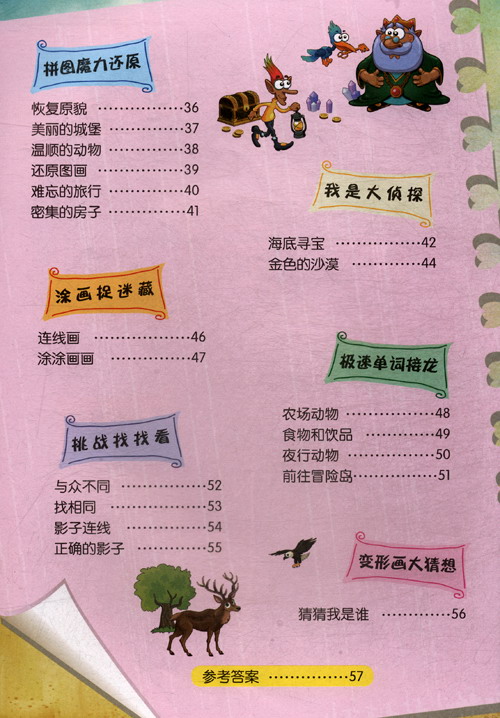 拼图魔力还原
恢复原貌 ················ 36
美丽的城堡 ············ 37
温顺的动物 ············ 38
还原图画 ················ 39
难忘的旅行 ············ 40
密集的房子 ············ 41
我是大侦探
海底寻宝 ················ 42
金色的沙漠 ············ 44
涂画捉迷藏
连线画 ···················· 46
涂涂画画 ················ 47
极速单词接龙
农场动物 ················ 48
食物和饮品 ············ 49
夜行动物 ················ 50
前往冒险岛 ············ 51
挑战找找看
与众不同 ················ 52
找相同 ···················· 53
影子连线 ················ 54
正确的影子 ············ 55
变形画大猜想
猜猜我是谁 ············ 56
参考答案 ················ 57